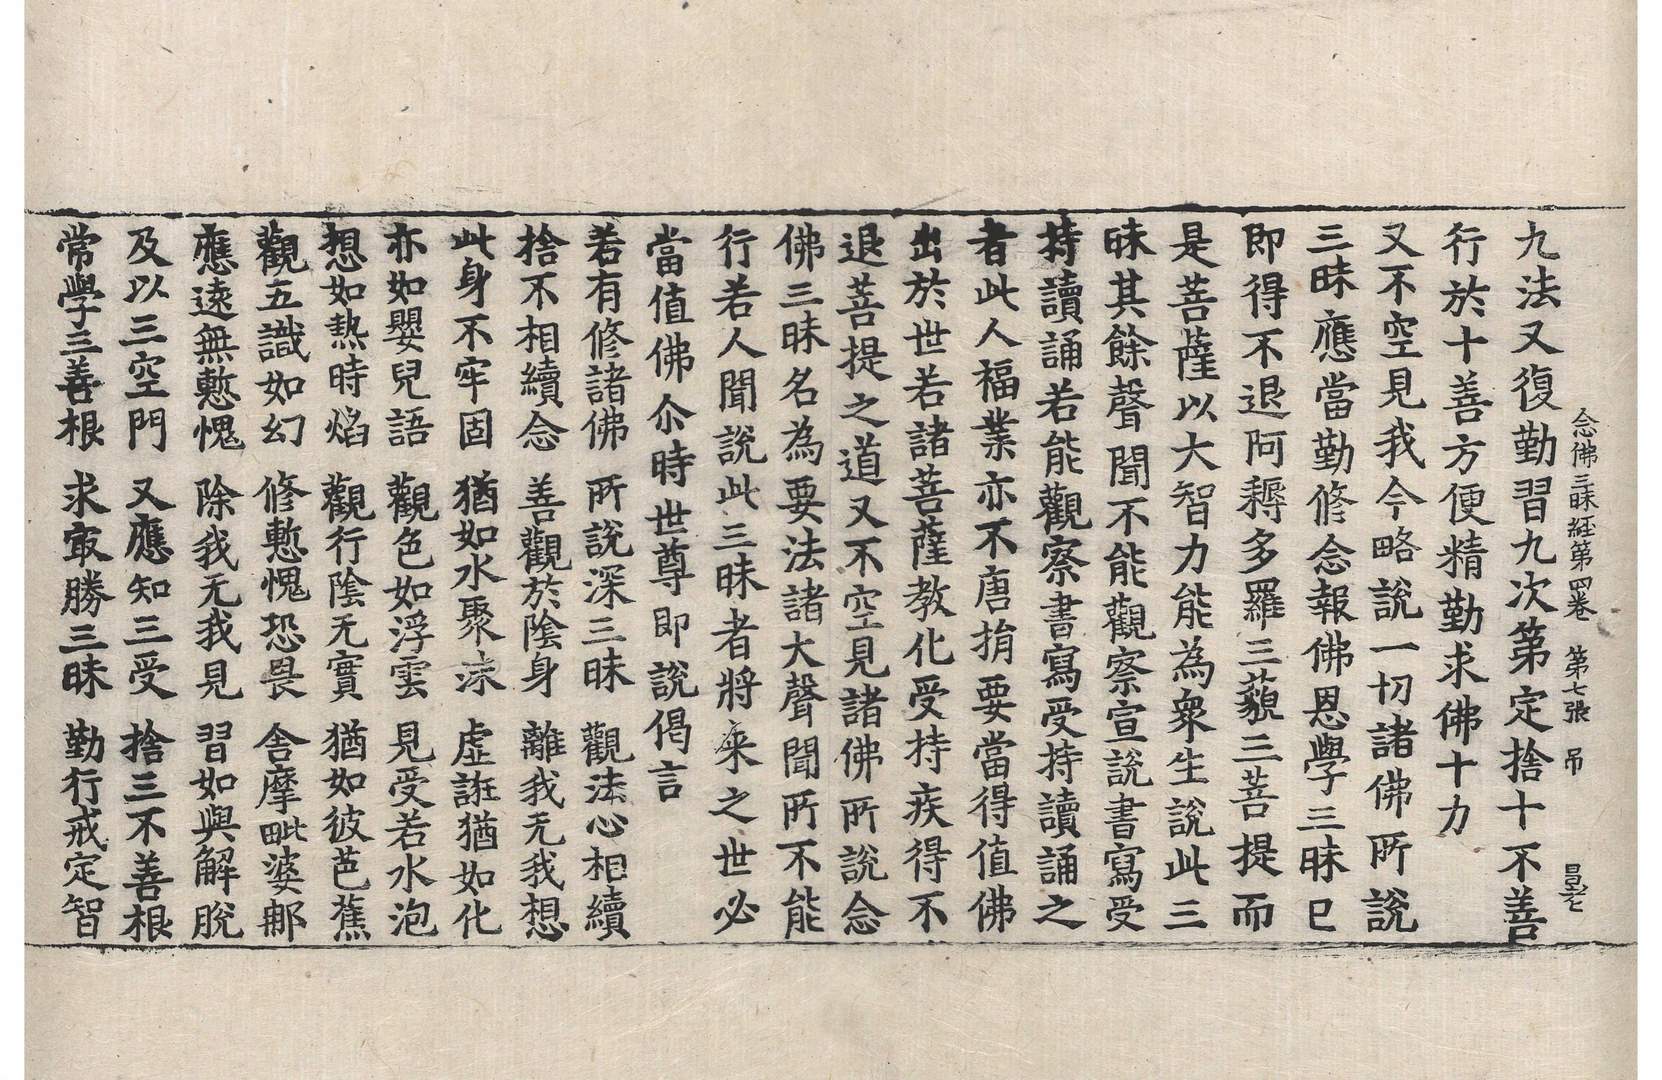 念佛三昧經第四卷 第七張 吊
九法又復勤習九次第定捨十不善
行於十善方便精勤求佛十力
又不空見我今略說一切諸佛所說
三昧應當勤修念報佛恩學三昧已
即得不退阿耨多羅三藐三菩提而
是菩薩以大智力能為衆生說此三
昧其餘聲聞不能觀察宣說書寫受
持讀誦若能觀察書寫受持讀誦之
者此人福業亦不唐捐要當得值佛
出於世若諸菩薩教化受持疾得不
退菩提之道又不空見諸佛所說念
佛三昧名為要法諸大聲聞所不能
行若人聞說此三昧者將來之世必
當值佛尒時世尊即說偈言
若有修諸佛 所說深三昧 觀法心相續
捨不相續念 善觀於陰身 離我无我想
此身不牢固 猶如水聚沫 虛誑猶如化
亦如嬰兒語 觀色如浮雲 見受若水泡
想如熱時焰 觀行陰无實 猶如彼芭蕉
觀五識如幻 修慙愧恐畏 舍摩毗婆那
應遠無慙愧 除我无我見 習如與解脫
及以三空門 又應知三受 捨三不善根
常學三善根 求冣勝三昧 勤行戒定智